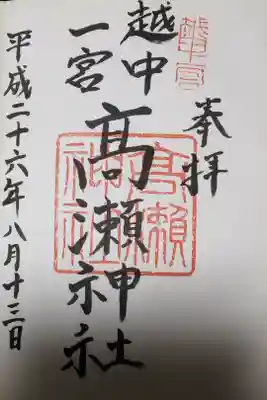 奉拝
越中
一宮
髙瀬神社
平成二十六年八月十三日
高瀬神社